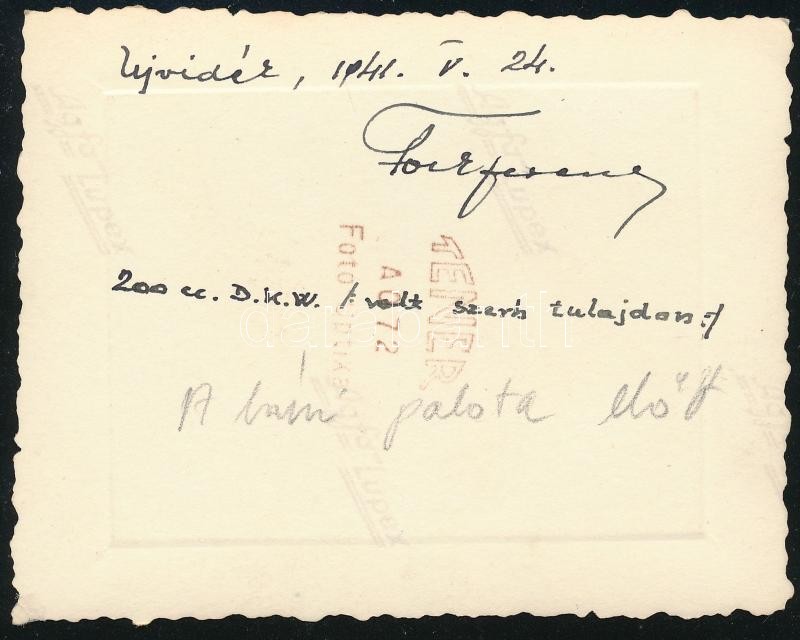 Ujvidék, 1941. V. 24.
200 cc. D.K.W. /: volt szerb tulajdon :/
A báni palota előtt
TENER
A 0 72
Foto
Agfa Lupex
Agfa Lupex
Agfa Lupex